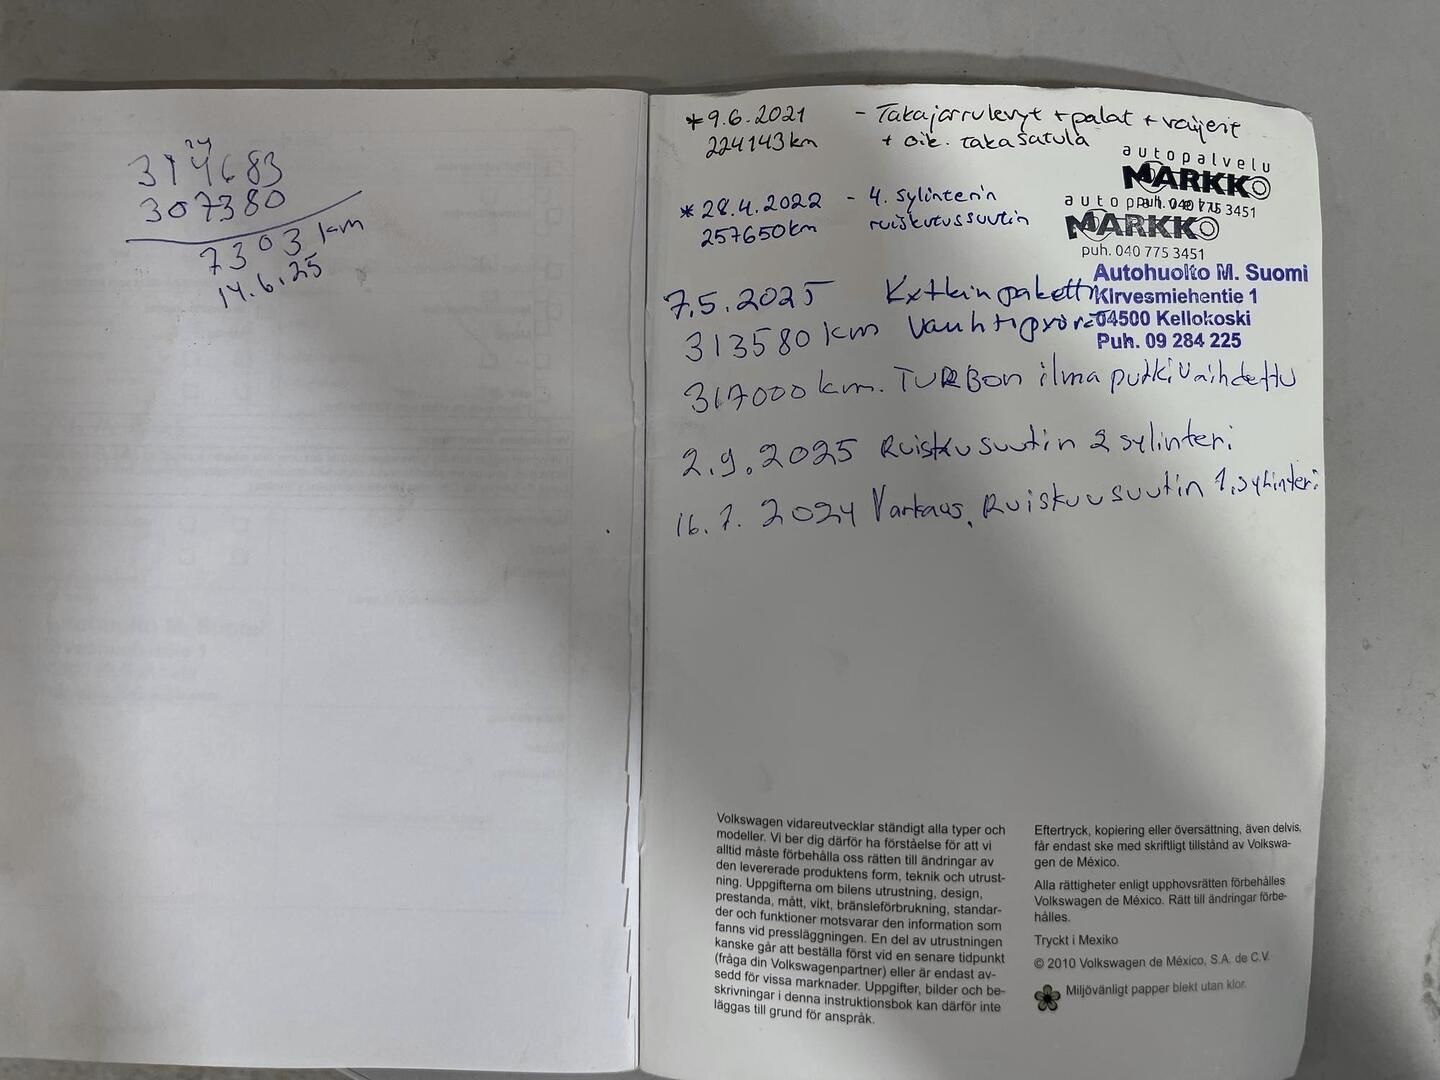 314683
307380
7303 km
14.6.25
* 9.6.2021 - Takajarrulevyt + palat + vaijerit
224143 km + oik. takasatula
autopalvelu
MARKKO
puh. 040 775 3451
* 28.4.2022 - 4. sylinterin
257650 km ruiskutussuutin
autopalvelu
MARKKO
puh. 040 775 3451
Autohuolto M. Suomi
Kirvesmiehentie 1
04500 Kellokoski
Puh. 09 284 225
7.5.2025 Kytkinpaketti
313580 km Vauhtipyörä
317000 km. TURBON ilma putki vaihdettu
2.9.2025 Ruiskusuutin 2 sylinteri
16.7.2024 Varkaus, Ruiskuusuutin 1. sylinteri
Volkswagen vidareutvecklar ständigt alla typer och
modeller. Vi ber dig därför ha förståelse för att vi
alltid måste förbehålla oss rätten till ändringar av
den levererade produktens form, teknik och utrust-
ning. Uppgifterna om bilens utrustning, design,
prestanda, mått, vikt, bränsleförbrukning, standar-
der och funktioner motsvarar den information som
fanns vid pressläggningen. En del av utrustningen
kanske går att beställa först vid en senare tidpunkt
(fråga din Volkswagenpartner) eller är endast av-
sedd för vissa marknader. Uppgifter, bilder och be-
skrivningar i denna instruktionsbok kan därför inte
läggas till grund för anspråk.
Eftertryck, kopiering eller översättning, även delvis,
får endast ske med skriftligt tillstånd av Volkswa-
gen de México.
Alla rättigheter enligt upphovsrätten förbehålles
Volkswagen de México. Rätt till ändringar förbe-
hålles.
Tryckt i Mexiko
© 2010 Volkswagen de México, S.A. de C.V.
Miljövänligt papper blekt utan klor.